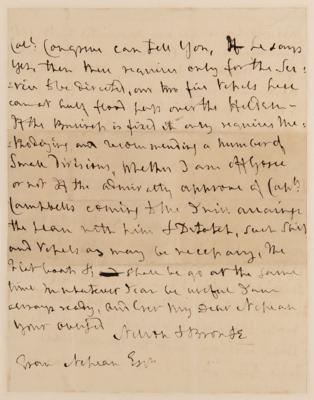 Capt: Congreve can tell You, If he says
Yes, then there requires only for the Ser-
vice to be Directed, our two fire Vessels here
can at half flood pass over the
If the Business is fixed it only requires Me-
thodizing and recommending a number of
Small Divisions, whether I am off here
or not if the admiralty approve of Capt:
Campbells coming to me I will arrange
the plan with him & Dispatch, such Ships
and Vessels as may be necessary, the
boats &c shall be go at the same
time. In whatever I can be useful I am
always ready, and Ever My Dear Nepean
Your obliged
Nelson & Bronte
Evan Nepean Esqr